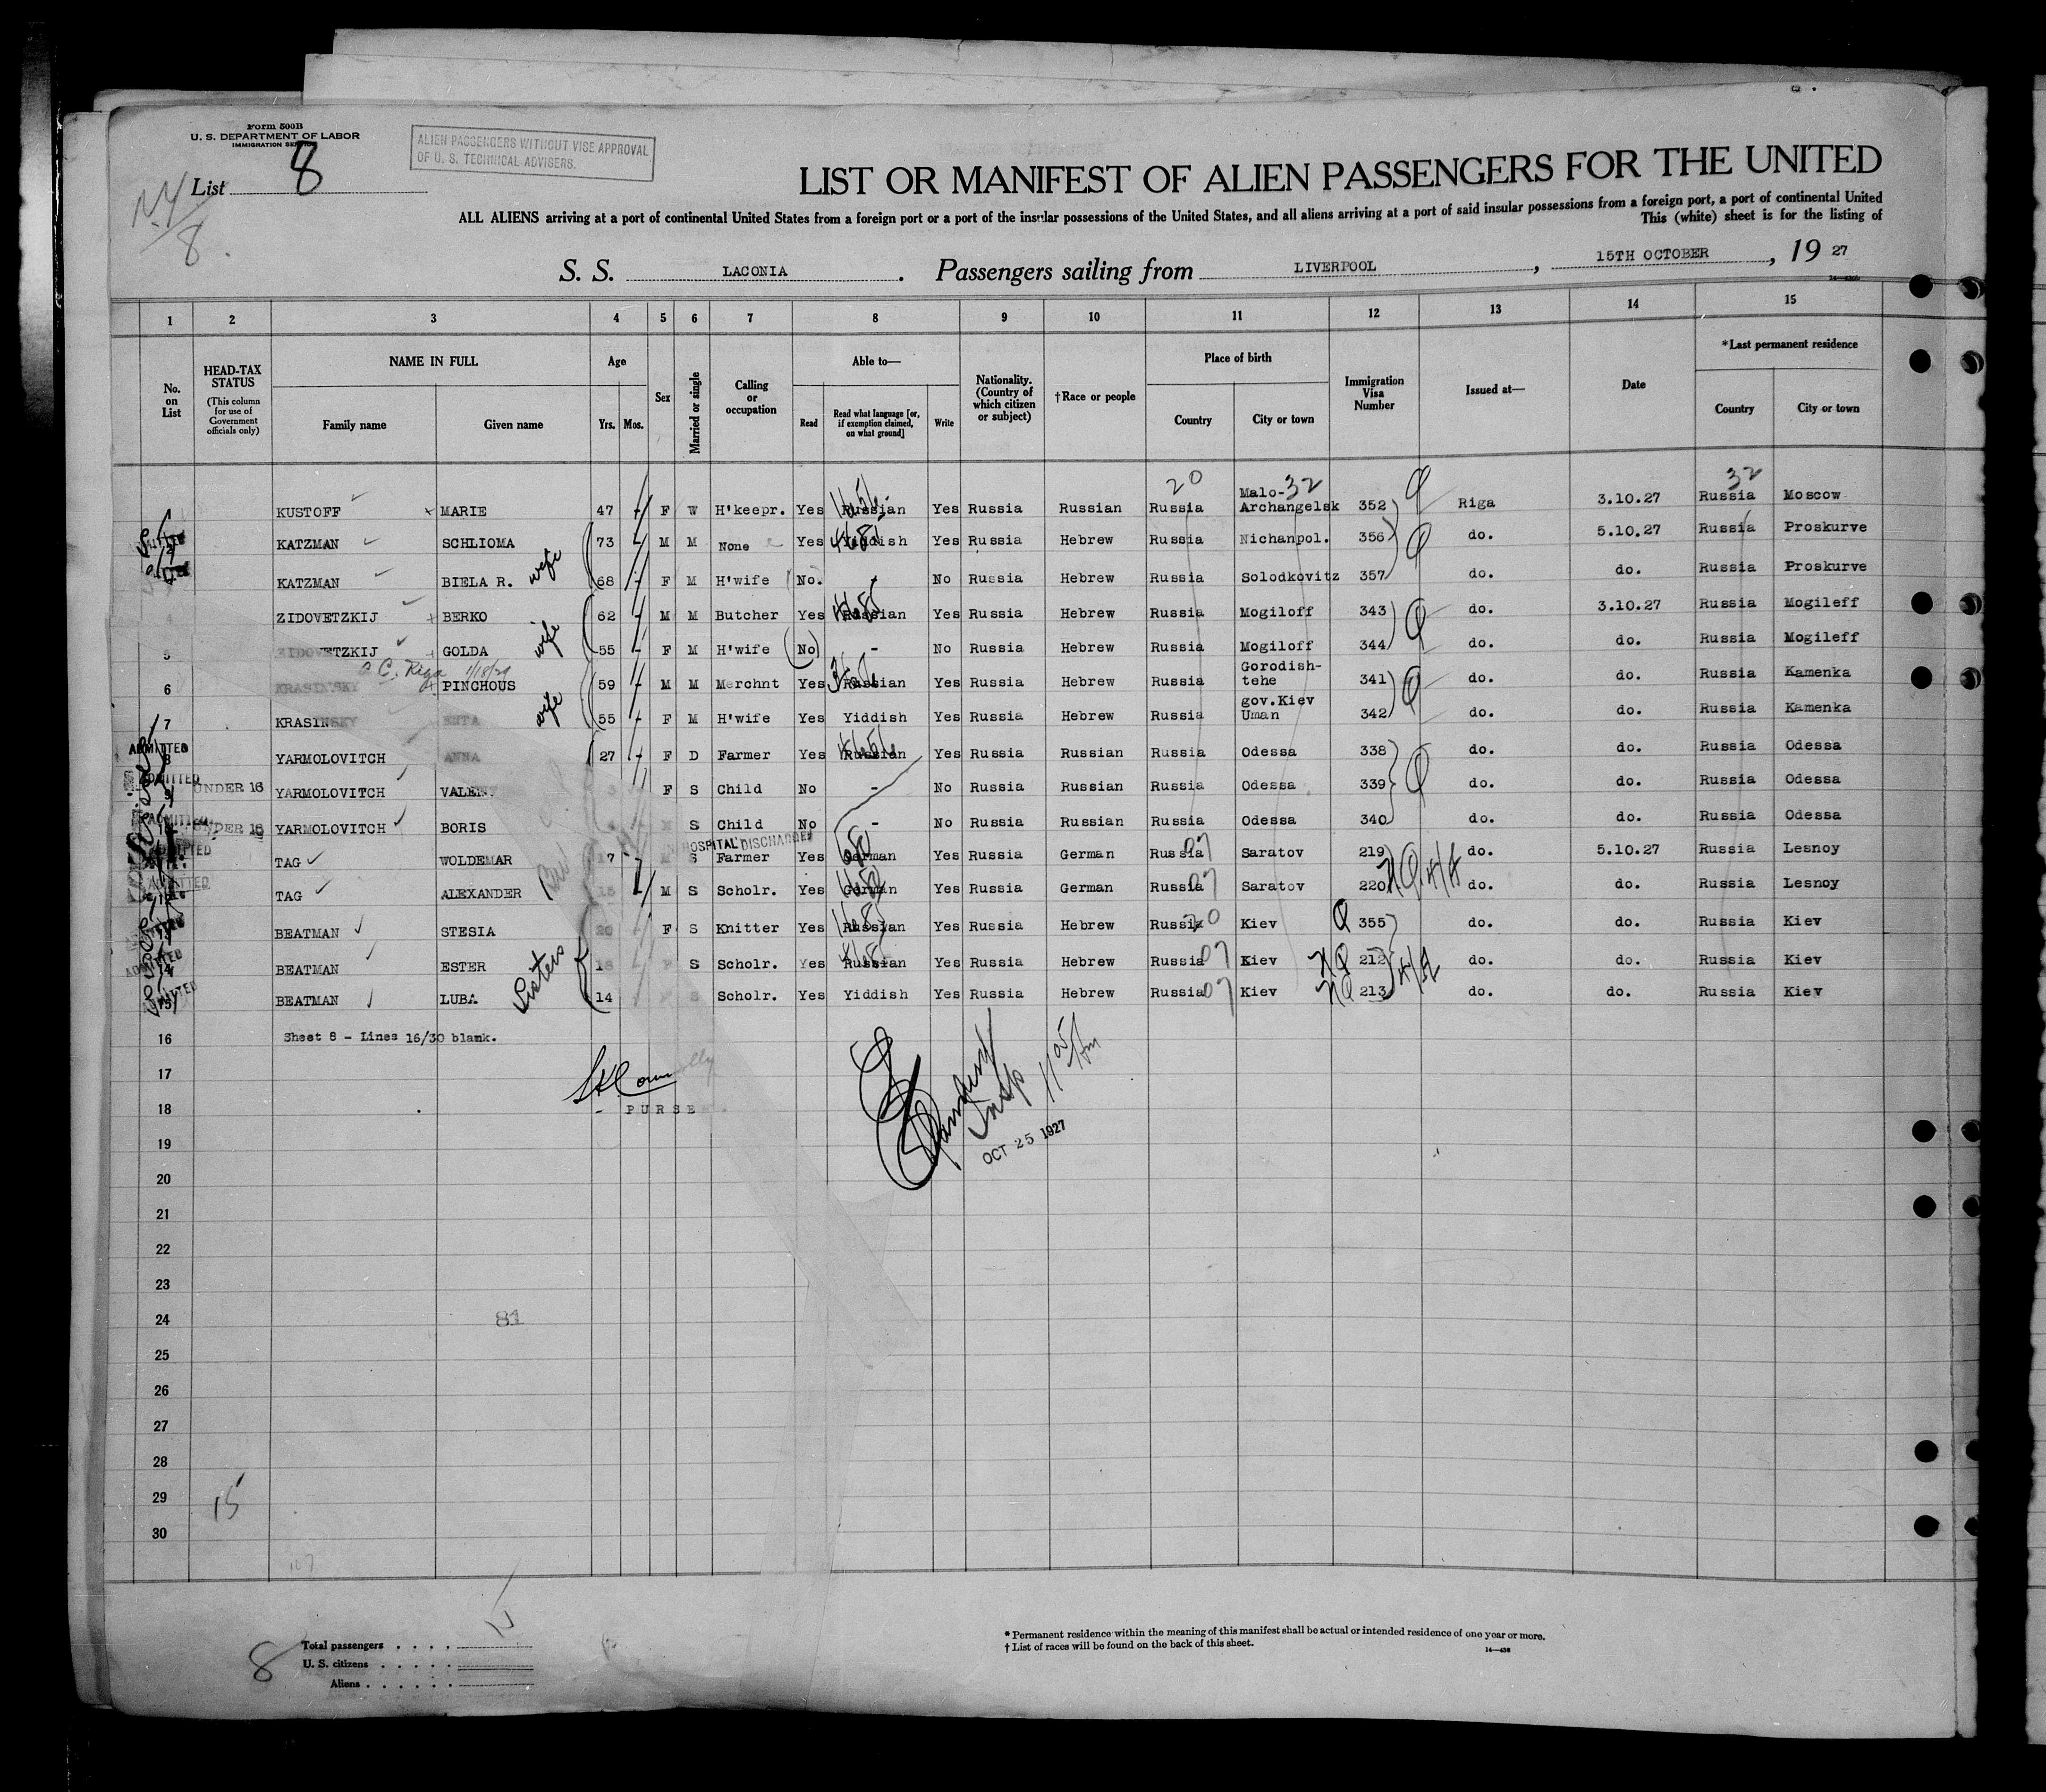 Form 500B
U. S. DEPARTMENT OF LABOR
IMMIGRATION SERVICE
List 8
NY/8.
ALIEN PASSENGERS WITHOUT VISE APPROVAL
OF U. S. TECHNICAL ADVISERS.
LIST OR MANIFEST OF ALIEN PASSENGERS FOR THE UNITED
ALL ALIENS arriving at a port of continental United States from a foreign port or a port of the insular possessions of the United States, and all aliens arriving at a port of said insular possessions from a foreign port, a port of continental United
This (white) sheet is for the listing of
S. S. LACONIA. Passengers sailing from LIVERPOOL, 15TH OCTOBER, 19 27
1 2 3 4 5 6 7 8 9 10 11 12 13 14 15
No. on List
HEAD-TAX STATUS (This column for use of Government officials only)
NAME IN FULL
Family name Given name
Age
Yrs. Mos.
Sex
Married or single
Calling or occupation
Able to—
Read Read what language [or, if exemption claimed, on what ground] Write
Nationality. (Country of which citizen or subject)
†Race or people
Place of birth
Country City or town
Immigration Visa Number
Issued at—
Date
*Last permanent residence
Country City or town
20 32 32
KUSTOFF MARIE 47 F W H'keepr. Yes Russian Yes Russia Russian Russia Malo-Archangelsk 352 Riga 3.10.27 Russia Moscow
2 KATZMAN SCHLIOMA 73 M M None Yes Yiddish Yes Russia Hebrew Russia Nichanpol. 356 do. 5.10.27 Russia Proskurve
KATZMAN BIELA R. wife 68 F M H'wife No. - No Russia Hebrew Russia Solodkovitz 357 do. do. Russia Proskurve
4 ZIDOVETZKIJ BERKO 62 M M Butcher Yes Russian Yes Russia Hebrew Russia Mogiloff 343 do. 3.10.27 Russia Mogileff
5 ZIDOVETZKIJ GOLDA wife 55 F M H'wife (No) - No Russia Hebrew Russia Mogiloff 344 do. do. Russia Mogileff
C. Riga
6 KRASINSKY PINCHOUS 59 M M Merchnt Yes Russian Yes Russia Hebrew Russia Gorodish-tehe 341 do. do. Russia Kamenka
7 KRASINSKY wife 55 F M H'wife Yes Yiddish Yes Russia Hebrew Russia gov.Kiev Uman 342 do. do. Russia Kamenka
ADMITTED
8 YARMOLOVITCH ANNA 27 F D Farmer Yes Russian Yes Russia Russian Russia Odessa 338 do. do. Russia Odessa
ADMITTED
9 UNDER 16 YARMOLOVITCH F S Child No - No Russia Russian Russia Odessa 339 do. do. Russia Odessa
ADMITTED
10 UNDER 16 YARMOLOVITCH BORIS S Child No - No Russia Russian Russia Odessa 340 do. do. Russia Odessa
HOSPITAL DISCHARGED
ADMITTED
TAG WOLDEMAR 17 S Farmer Yes German Yes Russia German Russia 07 Saratov 219 do. 5.10.27 Russia Lesnoy
ADMITTED
TAG ALEXANDER 15 M S Scholr. Yes German Yes Russia German Russia 07 Saratov 220 do. do. Russia Lesnoy
BEATMAN STESIA 20 F S Knitter Yes Russian Yes Russia Hebrew Russia 20 Kiev 355 do. do. Russia Kiev
ADMITTED
14 BEATMAN ESTER Sisters S Scholr. Yes Russian Yes Russia Hebrew Russia 07 Kiev 212 do. do. Russia Kiev
15 BEATMAN LUBA 14 Scholr. Yes Yiddish Yes Russia Hebrew Russia 07 Kiev 213 do. do. Russia Kiev
16 Sheet 8 - Lines 16/30 blank.
17
- PURSER
18
Insp
OCT 25 1927
19
20
21
22
23
24
81
25
26
27
28
29
15
30
107
8
Total passengers . . . .
U. S. citizens . . . . .
Aliens . . . . . .
* Permanent residence within the meaning of this manifest shall be actual or intended residence of one year or more.
† List of races will be found on the back of this sheet.
14—436